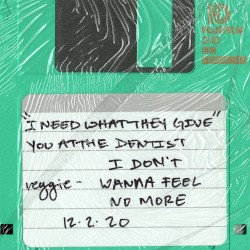 "I NEED WHAT THEY GIVE"
YOU AT THE DENTIST
I DON'T
reggie - WANNA FEEL
NO MORE
12.2.20